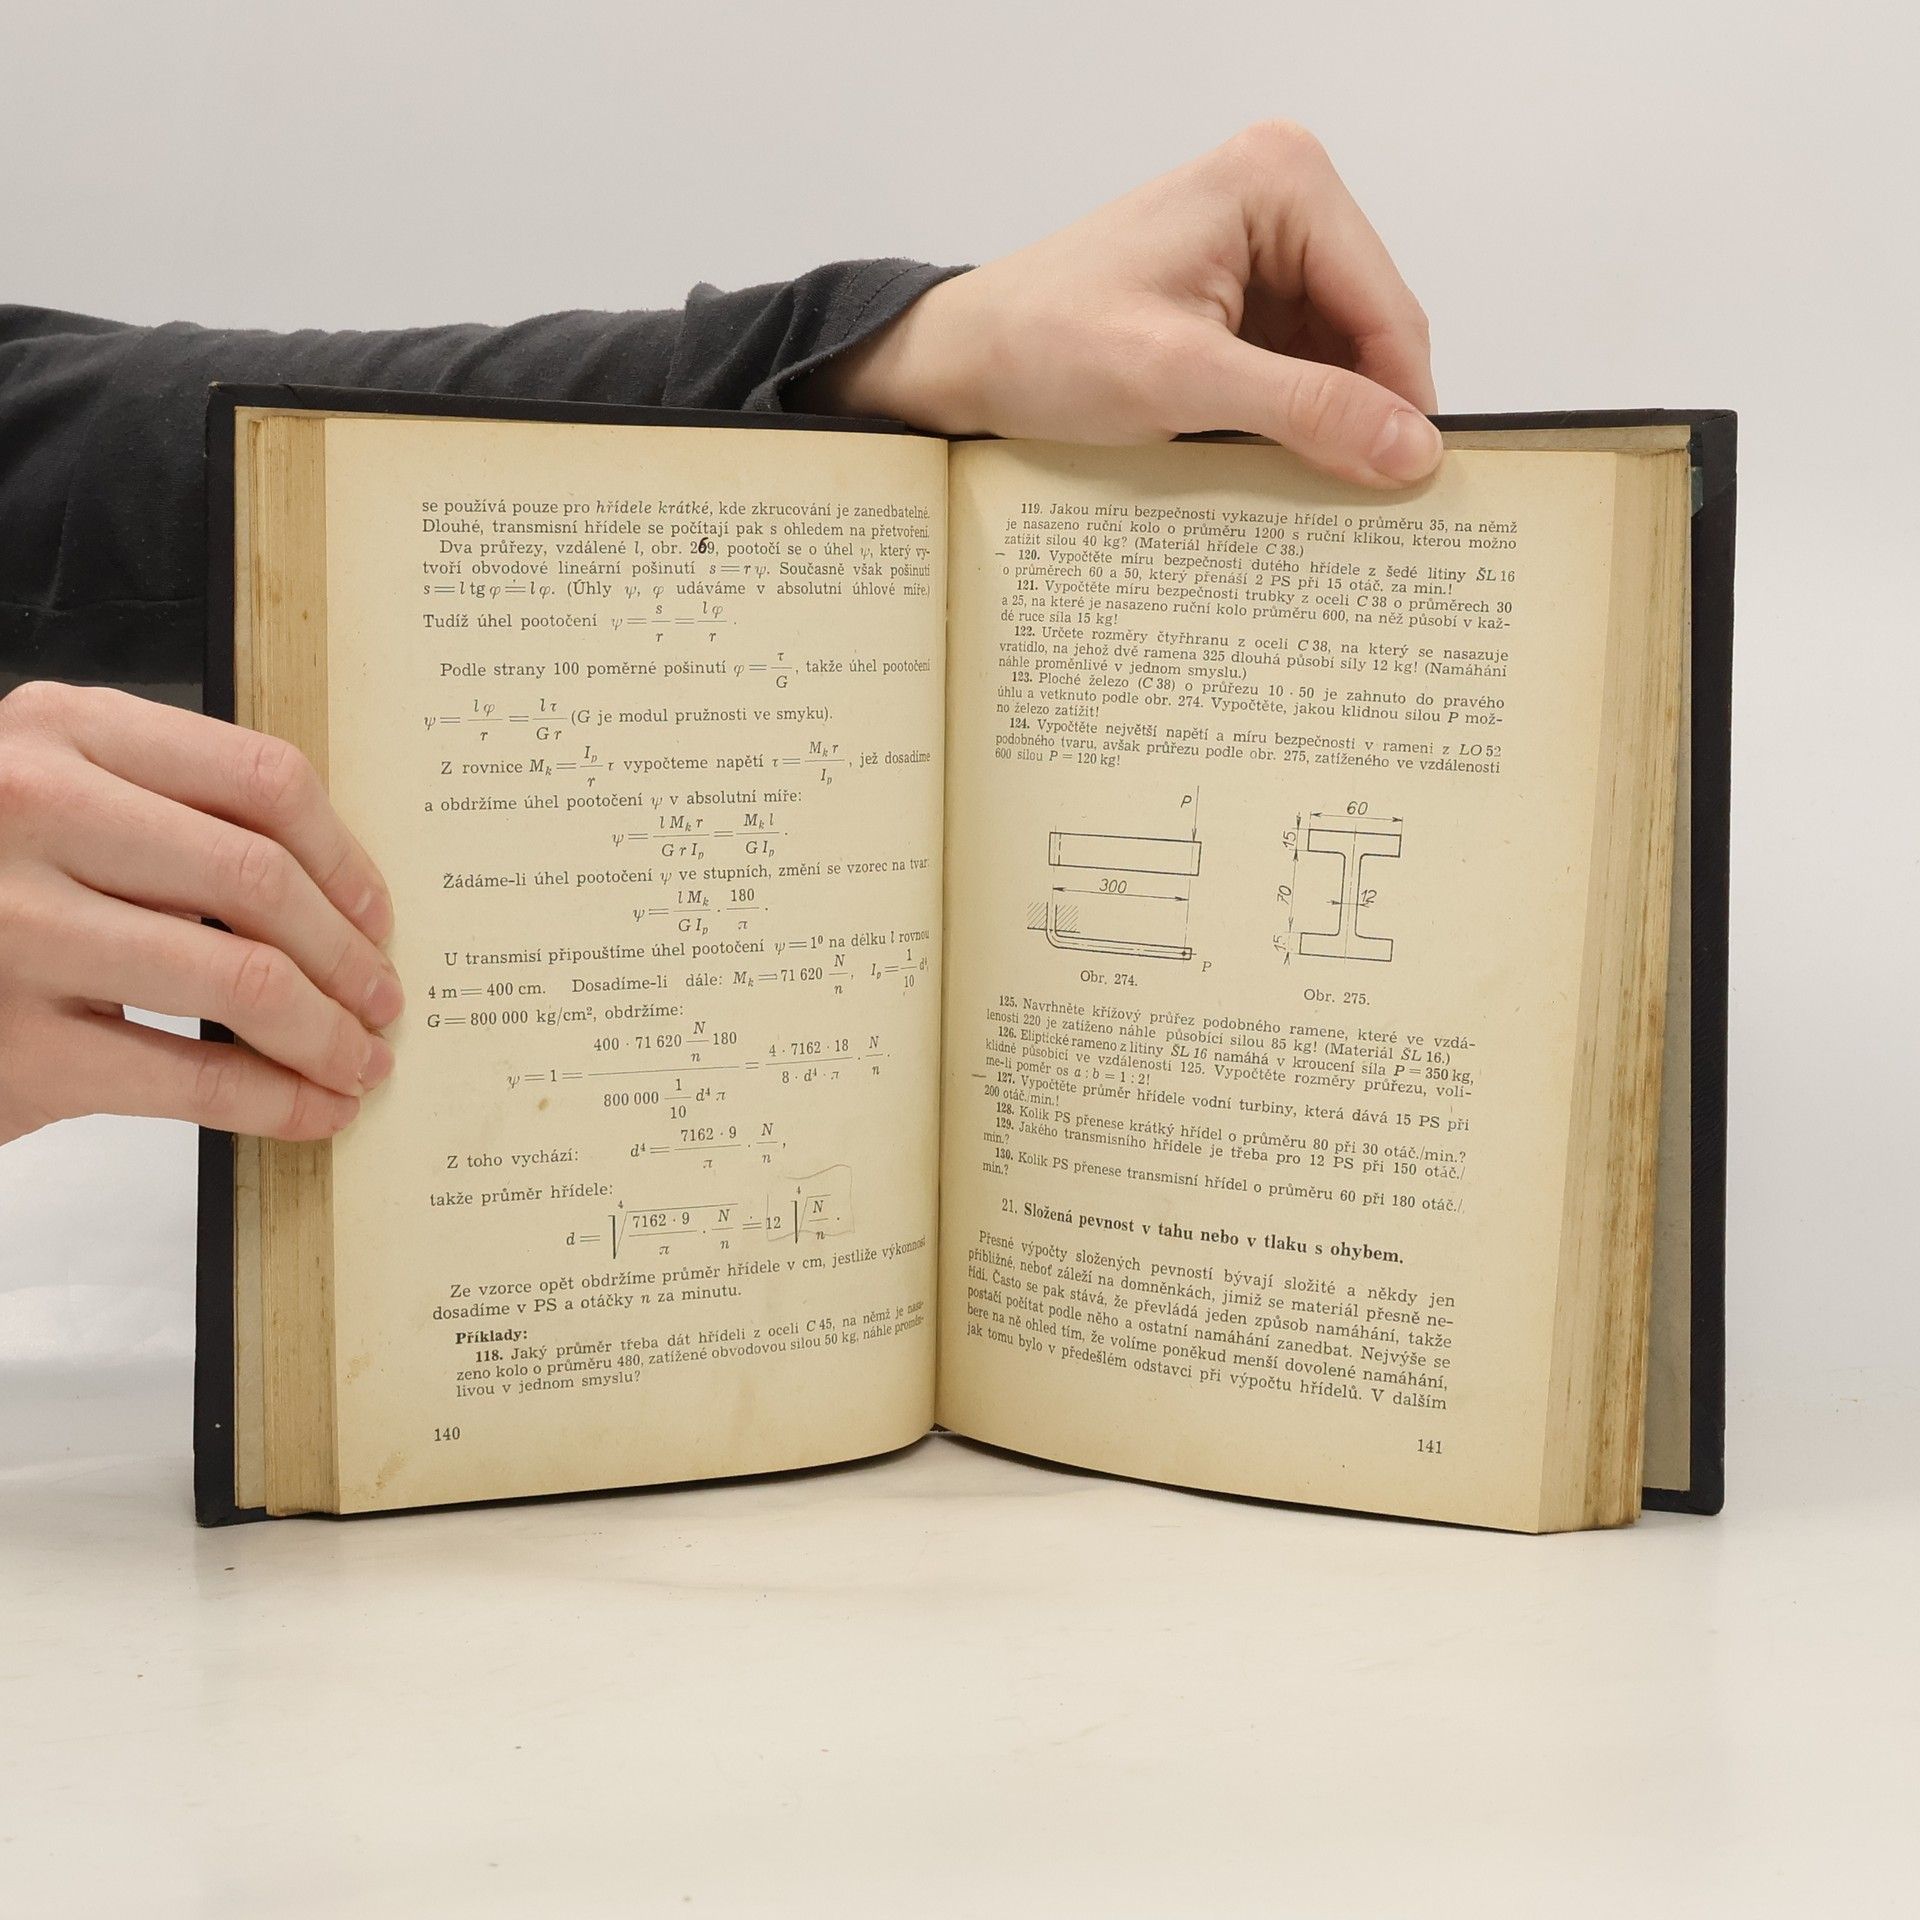 se používá pouze pro hřídele krátké, kde zkrucování je zanedbatelné.
Dlouhé, transmisní hřídele se počítají pak s ohledem na přetvoření.
Dva průřezy, vzdálené l, obr. 269, pootočí se o úhel ψ, který vy-
tvoří obvodové lineární pošinutí s = r ψ. Současně však pošinutí
s = l tg φ ≐ l φ. (Úhly ψ, φ udáváme v absolutní úhlové míře.)
Tudíž úhel pootočení ψ = s/r = l φ/r .
Podle strany 100 poměrné pošinutí φ = τ/G, takže úhel pootočení
ψ = l φ/r = l τ/G r (G je modul pružnosti ve smyku).
Z rovnice Mk = Ip/r τ vypočteme napětí τ = Mk r/Ip, jež dosadíme
a obdržíme úhel pootočení ψ v absolutní míře:
ψ = l Mk r/G r Ip = Mk l/G Ip .
Žádáme-li úhel pootočení ψ ve stupních, změní se vzorec na tvar:
ψ = l Mk/G Ip · 180/π .
U transmisí připouštíme úhel pootočení ψ = 1⁰ na délku l rovnou
4 m = 400 cm. Dosadíme-li dále: Mk = 71 620 N/n, Ip = 1/10 d⁴,
G = 800 000 kg/cm², obdržíme:
ψ = 1 = 400 · 71 620 N/n 180 / 800 000 1/10 d⁴ π = 4 · 7162 · 18/8 · d⁴ · π · N/n .
Z toho vychází: d⁴ = 7162 · 9/π · N/n ,
takže průměr hřídele:
d = ⁴√(7162 · 9/π · N/n) ≐ 12 ⁴√(N/n) .
Ze vzorce opět obdržíme průměr hřídele v cm, jestliže výkonnost
dosadíme v PS a otáčky n za minutu.
Příklady:
118. Jaký průměr třeba dát hřídeli z oceli C 45, na němž je nasa-
zeno kolo o průměru 480, zatížené obvodovou silou 50 kg, náhle proměn-
livou v jednom smyslu?
140
119. Jakou míru bezpečnosti vykazuje hřídel o průměru 35, na němž
je nasazeno ruční kolo o průměru 1200 s ruční klikou, kterou možno
zatížit silou 40 kg? (Materiál hřídele C 38.)
— 120. Vypočtěte míru bezpečnosti dutého hřídele z šedé litiny ŠL 16
o průměrech 60 a 50, který přenáší 2 PS při 15 otáč. za min.!
121. Vypočtěte míru bezpečnosti trubky z oceli C 38 o průměrech 30
a 25, na které je nasazeno ruční kolo průměru 600, na něž působí v kaž-
dé ruce síla 15 kg!
122. Určete rozměry čtyřhranu z oceli C 38, na který se nasazuje
vratidlo, na jehož dvě ramena 325 dlouhá působí síly 12 kg! (Namáhání
náhle proměnlivé v jednom smyslu.)
123. Ploché železo (C 38) o průřezu 10 · 50 je zahnuto do pravého
úhlu a vetknuto podle obr. 274. Vypočtěte, jakou klidnou silou P mož-
no železo zatížit!
124. Vypočtěte největší napětí a míru bezpečnosti v rameni z LO 52
podobného tvaru, avšak průřezu podle obr. 275, zatíženého ve vzdálenosti
600 silou P = 120 kg!
P
300
P
Obr. 274.
60
15
70
12
15
Obr. 275.
125. Navrhněte křížový průřez podobného ramene, které ve vzdá-
lenosti 220 je zatíženo náhle působící silou 85 kg! (Materiál ŠL 16.)
126. Eliptické rameno z litiny ŠL 16 namáhá v kroucení síla P = 350 kg,
klidně působící ve vzdálenosti 125. Vypočtěte rozměry průřezu, volí-
me-li poměr os a : b = 1 : 2!
— 127. Vypočtěte průměr hřídele vodní turbiny, která dává 15 PS při
200 otáč./min.!
128. Kolik PS přenese krátký hřídel o průměru 80 při 30 otáč./min.?
129. Jakého transmisního hřídele je třeba pro 12 PS při 150 otáč./
min.?
130. Kolik PS přenese transmisní hřídel o průměru 60 při 180 otáč./
min.?
21. Složená pevnost v tahu nebo v tlaku s ohybem.
Přesné výpočty složených pevností bývají složité a někdy jen
přibližné, neboť záleží na domněnkách, jimiž se materiál přesně ne-
řídí. Často se pak stává, že převládá jeden způsob namáhání, takže
postačí počítat podle něho a ostatní namáhání zanedbat. Nejvýše se
bere na ně ohled tím, že volíme poněkud menší dovolené namáhání,
jak tomu bylo v předešlém odstavci při výpočtu hřídelů. V dalším
141